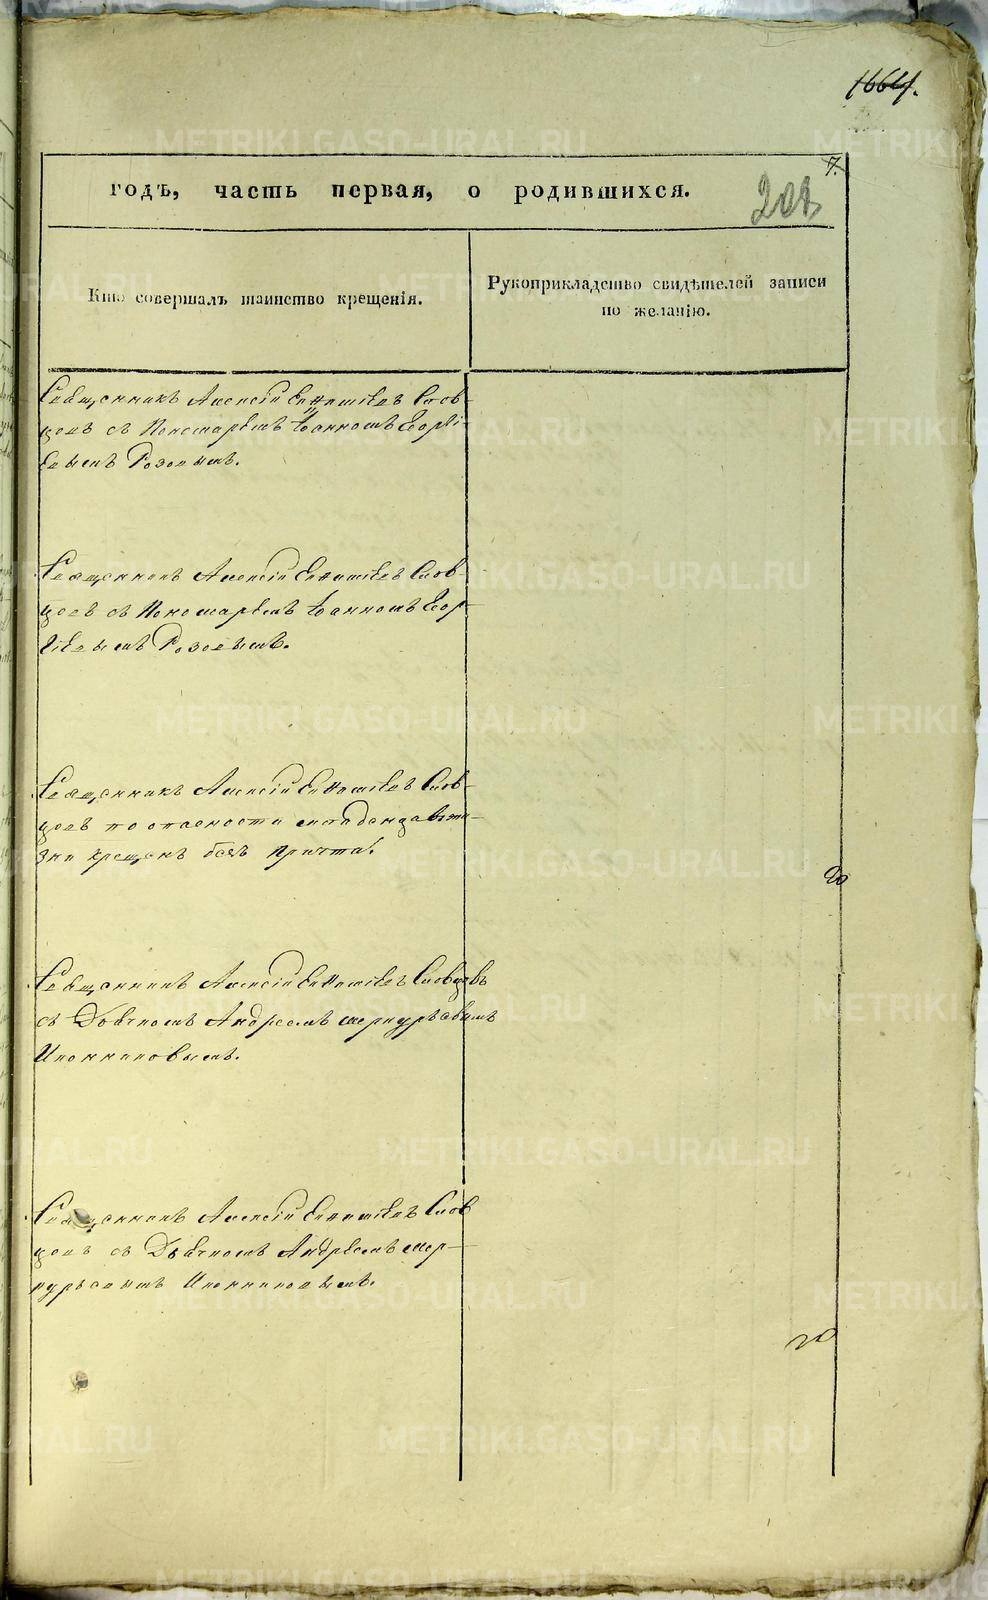 1664.
7.
годъ, часть первая, о родившихся.
208
Кто совершалъ таинство крещенія.
Рукоприкладство свидѣтелей записи
по желанію.
Священникъ Алексій Слов-
цовъ съ Пономаремъ Іоанномъ Георгі-
евымъ Розовымъ.
Священникъ Алексій Слов-
цовъ съ Пономаремъ Іоанномъ Геор-
гіевымъ Розовымъ.
Священникъ Алексій Слов-
цовъ по опасности жи-
зни крещенъ безъ причта.
20
Священникъ Алексій Словцовъ
съ Дьячкомъ Андреемъ Меркурьевымъ
Иконниковымъ.
Священникъ Алексій Слов
цовъ съ Дьячкомъ Андреемъ Мер-
курьевымъ Иконниковымъ.
20
METRIKI.GASO-URAL.RU